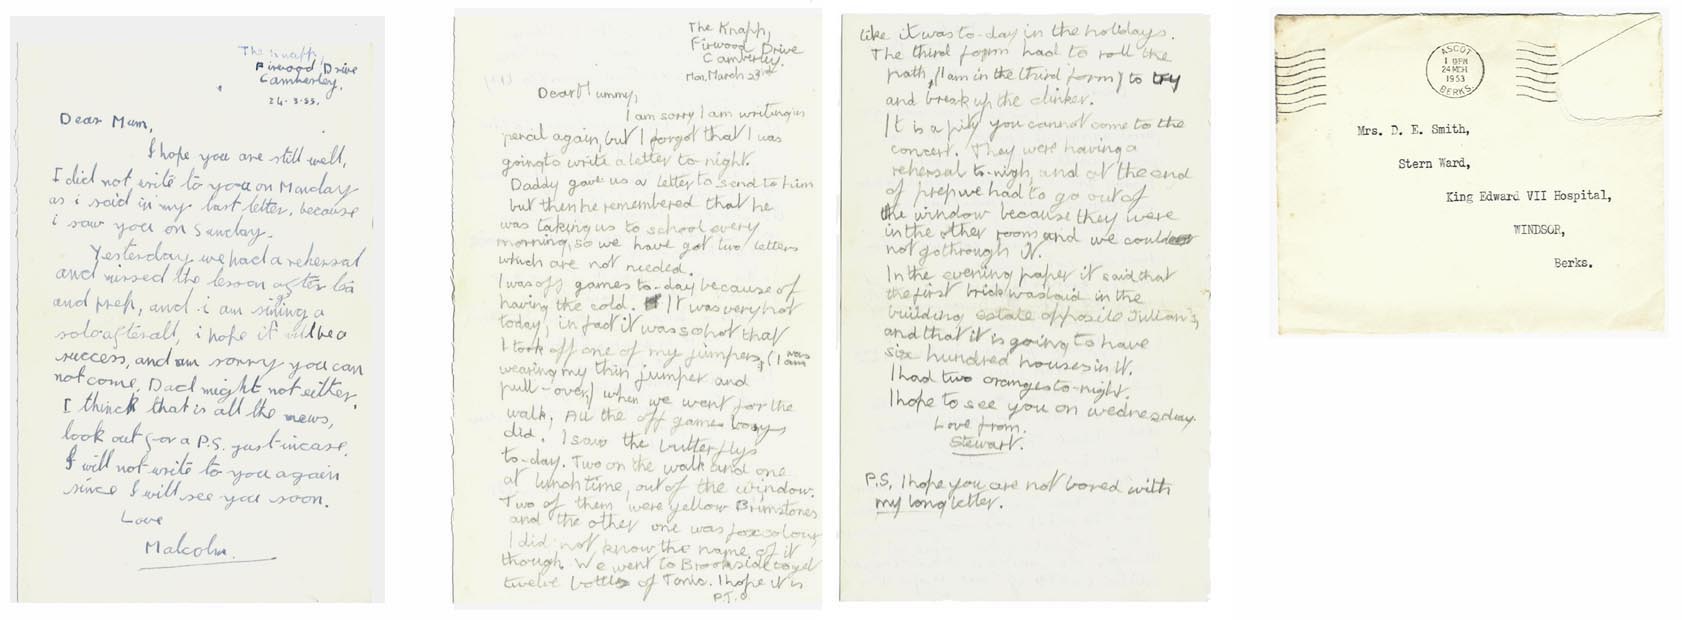 The Knapp,
Firwood Drive
Camberley.
24.3.53.
Dear Mum,
I hope you are still well,
I did not write to you on Monday
as i said in my last letter, because
i saw you on Sunday.
Yesterday we had a rehersal
and missed the lesson after tea
and prep, and i am singing a
solo after all, i hope it will be a
success, and am sorry you can
not come, Dad might not either.
I thinck that is all the news,
look out for a P.S. just incase.
I will not write to you again
since I will see you soon.
Love
Malcolm.
The Knapp,
Firwood Drive
Camberley.
Mon. March 23rd
Dear Mummy,
I am sorry I am writing in
pencil again, but I forgot that I was
going to write a letter to-night.
Daddy gave us a letter to send to him
but then he remembered that he
was taking us to school every
morning, so we have got two letters
which are not needed.
I was off games to-day because of
having the cold. It was very hot
today, in fact it was so hot that
I took off one of my jumpers, (I was
wearing my thin jumper and
pull-over) when we went for the
walk, All the off games boys
did. I saw the butterflys
to-day. Two on the walk and one
at lunch time, out of the window.
Two of them were yellow Brimstones
and the other one was fox colour
I did not know the name of it
though. We went to Brookside to get
twelve bottles of Tonic. I hope it is
P.T.O.
like it was to-day in the holidays.
The third form had to roll the
path, (I am in the third form) to try
and break up the clinker.
It is a pity you cannot come to the
concert. They were having a
rehersal to-nigh, and at the end
of prep we had to go out of
the window because they were
in the other room and we could
not go through it.
In the evening paper it said that
the first brick was laid in the
building estate opposite Jullian's,
and that it is going to have
six hundred houses in it.
I had two oranges to-night.
I hope to see you on wednesday.
Love from.
Stewart.
P.S. I hope you are not bored with
my long letter.
ASCOT
1 PM
24 MCH
1953
BERKS.
Mrs. D. E. Smith,
Stern Ward,
King Edward VII Hospital,
WINDSOR,
Berks.